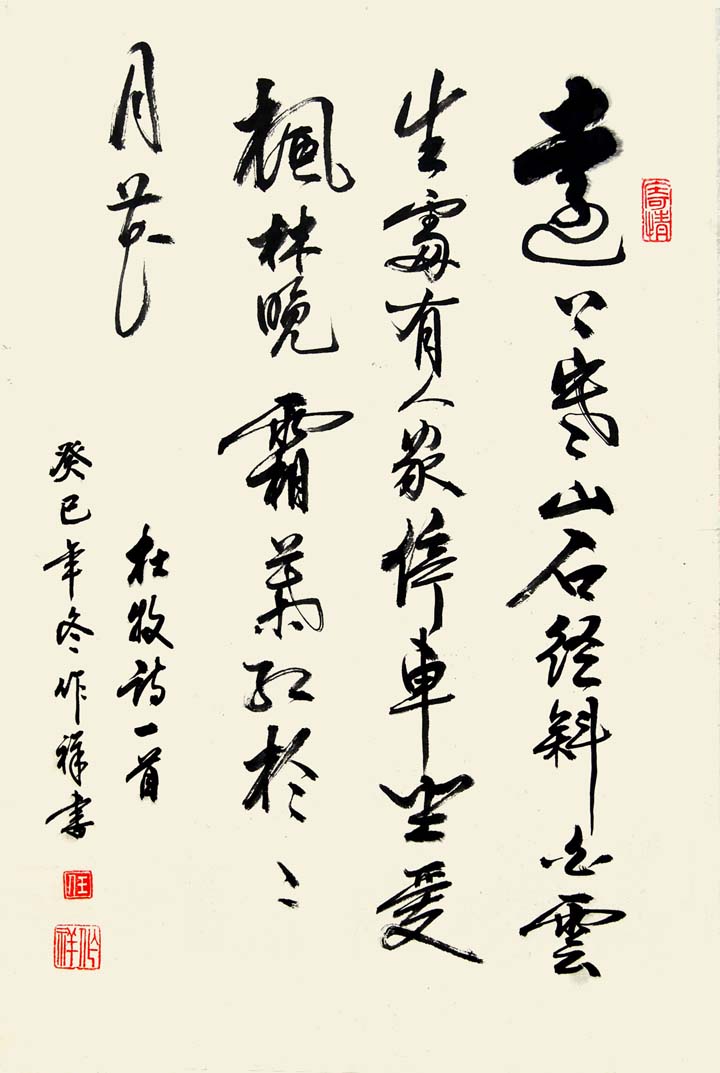 寄情
遠上寒山石徑斜白雲
生處有人家停車坐愛
楓林晚霜葉紅於二
月花
杜牧詩一首
癸巳年冬作祥書
作祥